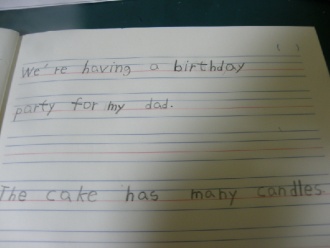 We're having a birthday
party for my dad.
The cake has many candles.